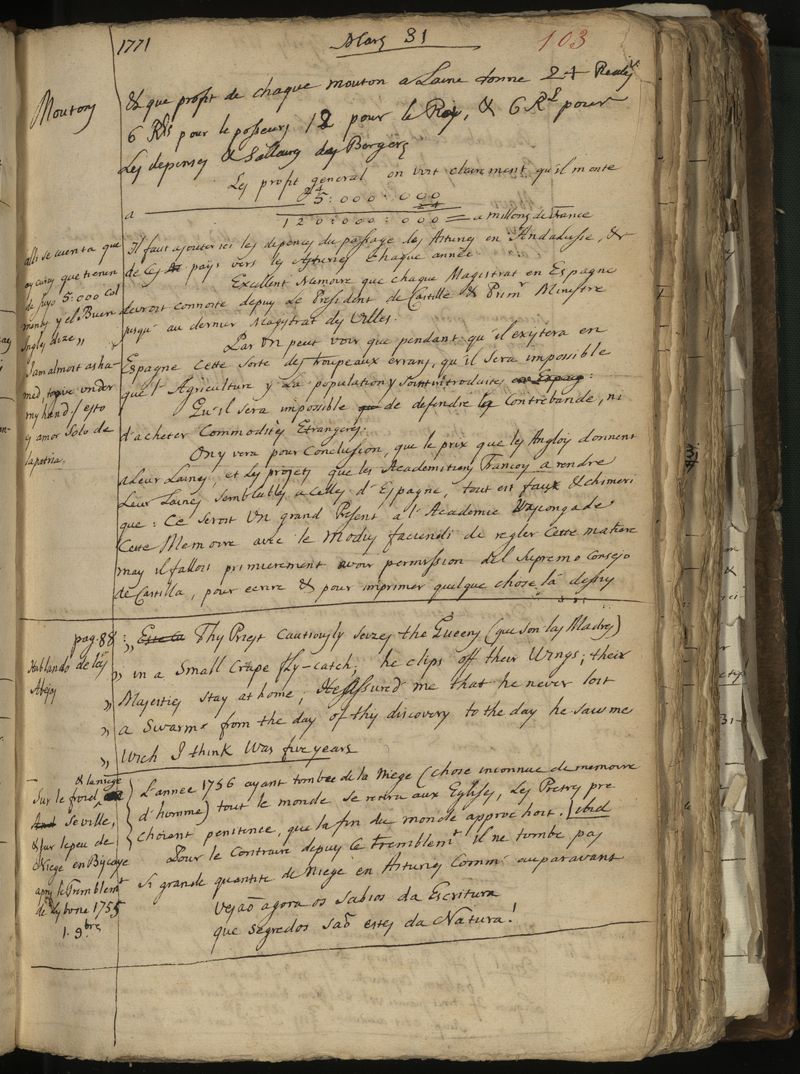 1771
Mars 31
103
Moutons
& que profit de chaque mouton a Laine donne 24 Reales
6 Rls pour le possesseurs 12 pour le Roy, & 6 Rs pour
Les depenses & Sallaires des Bergers
Les profit general on voit clairement qu'il monte
a 5:000:000
24
120:000:000 = a millons de France
alli se cuenta que
ay curas que tienen
de suyo 5:000 Col
menas y el Buen
Ingles dize „
I am almost asha
med to give under
my hand / esto
y amor solo de
la patria.
Il faut ajouter ici les depences du passage des Asturies en Andalusie, &
de ces pays vers les Asturies chaque année
Exellent Memoire que chaque Magistrat en Espagne
devroit connoitre depuis Le President de Castille & Primr Ministre
jusqu' au dernier Magistrat des Villes.
Par on peut voir que pendant qu'il exystera en
Espagne Cette sorte des troupeaux errans, qu'il sera impossible
que l'Agriculture y La population y soint introduites en Espag:
Qu'il sera impossible que de defendre les Contrebande, ni
d'acheter Commodités Etrangeres.
On y vera pour Conclusion, que le prix que les Anglois donnent
a Leur Laines, et Les projets que les Academitiens Francois a rendre
Leur Laines semblables a celles d'Espagne, tout est faux & chimeri
que: Ce seroit un grand Present a l'Academie Vascongade
Cette Memoire avec le Modus faciendi de regler Cette matiere
mais il falloit primierement avoir permission del Supremo Consejo
de Castilla, pour ecrire & pour imprimer quelque chose là dessus
pag. 88:
Hablando de las
Abejas
„ Este la Thy Priest Cautiously seizes the Queens (que son las Madres)
„ in a Small Crape fly-catch; he clips off their Wings; their
„ Majesties stay at home; He assured me that he never lost
„ a Swarm from the day of thy discovery to the day he saw me
„ Wich I think Was five years
Sur le froid & la niege
And Seville,
& sur lepeu de
Niege en Biscaye
apres le Tremblemt
de Lysbone 1755
1. 9bre
L'annee 1756 ayant tombée de la Niege (chose inconnue de memoire
d'homme) tout le monde se retira aux Eglises, Les Pretres pre
choient penitence, que la fin du monde approchoit. ibid
Pour le Contraire depuis ce tremblemt il ne tombe pas
si grande quantité de Niege en Asturies Comme auparavant
Vejão agora os sabios da Escritura
que segredos saõ estes da Natura!